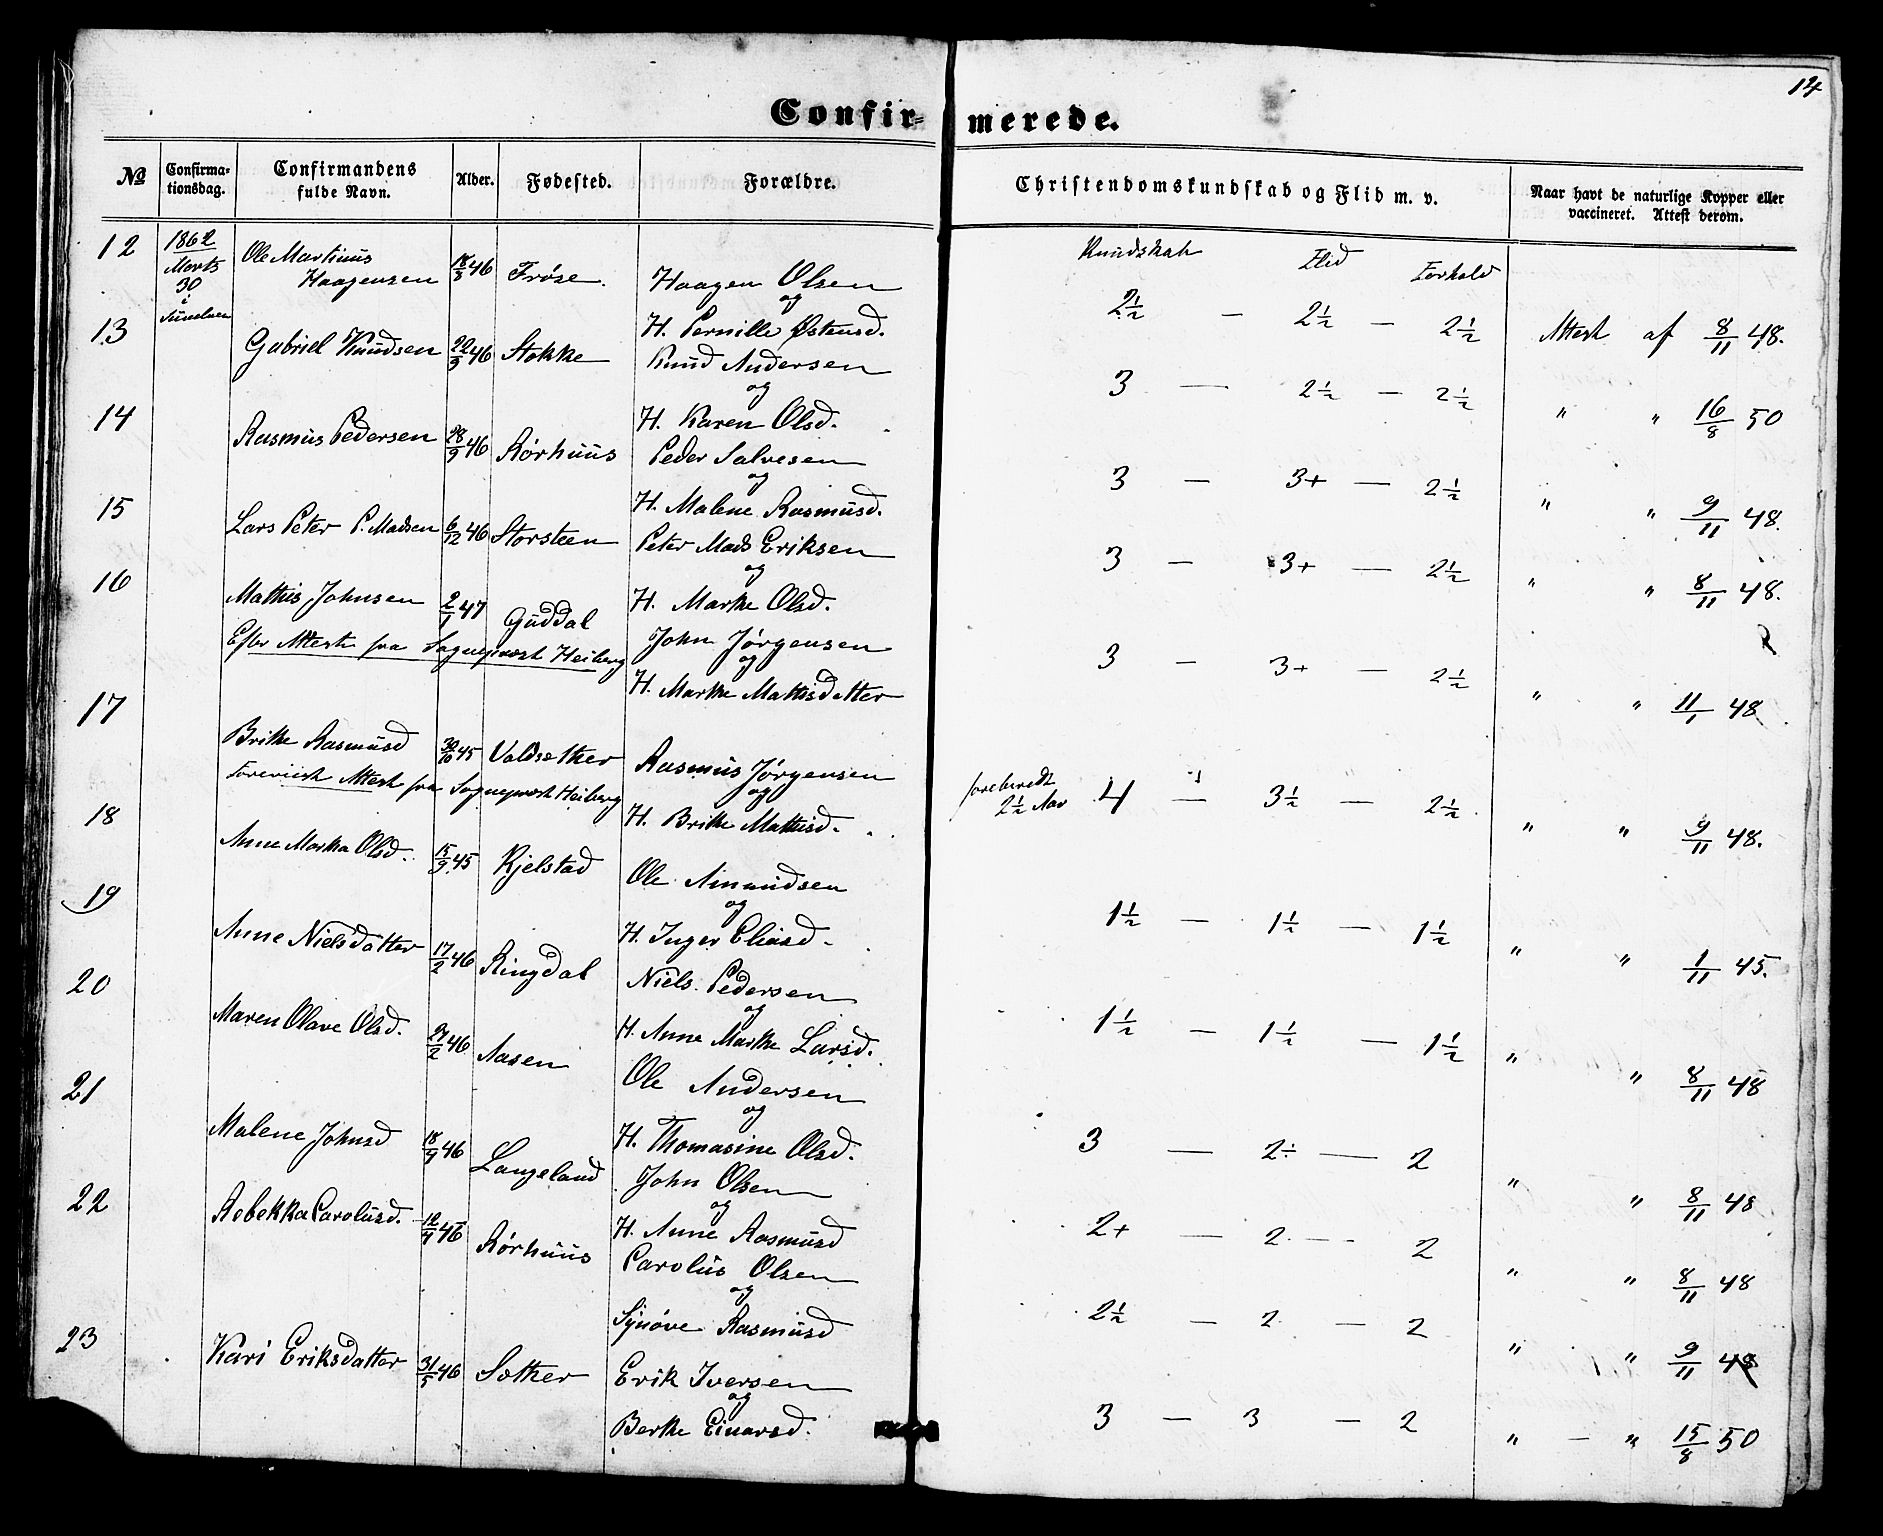 14
Confir- merede.
№ Confirma-tionsdag. Confirmandens fulde Navn. Alder. Fødested. Forældre. Christendomskundskab og Flid m. v. Naar havt de naturlige Kopper eller vaccineret. Attest derom.
Kundskab Flid Forhold
12 1862 Marts 30 i Ole Martinus Haagensen 18/3 46 Frøse. Haagen Olsen og H. Pernille Østensd. 2½ — 2½ — 2½ Attest af 8/11 48.
13 Gabriel Knudsen 22/9 46 Stokke Knud Andersen og H. Karen Olsd. 3 — 2½ — 2½ " " 16/8 50
14 Rasmus Pedersen 28/9 46 Rørhuus Peder Salvesen og H. Malene Rasmusd. 3 — 3+ — 2½ " " 9/11 48.
15 Lars Peter P. Madsen 6/12 46 Storsteen Peter Mads Eriksen og H. Marthe Olsd. 3 — 3+ — 2½ " " 8/11 48.
16 Mathis Johnsen 2/1 47 Guddal John Jørgensen og H. Marthe Mathisdatter 3 — 3+ — 2½ " " 11/1 48
Efter Attest fra Sogneprest Heiberg
17 Brithe Rasmusd 30/10 45 Valdsæther Rasmus Jørgensen og H. Brithe Mathisd. foreberedt 2½ Aar 4 — 3½ — 2½ " " 9/11 48.
Foreviist Attest fra Sogneprest Heiberg
18 Anne Martha Olsd. 15/9 45 Kjelstad Ole Amundsen og H. Inger Eliasd. 1½ — 1½ — 1½ " " 1/11 45.
19 Anne Nielsdatter 17/2 46 Ringdal Niels Pedersen og H. Anne Marthe Larsd. 1½ — 1½ — 1½ " " 8/11 48
20 Maren Olave Olsd. 24/2 46 Aasen Ole Andersen og H. Thomasine Olsd. 3 — 2÷ — 2 " " 8/11 48
21 Malene Johnsd 18/4 46 Langeland John Olsen og H. Anne Rasmusd 2+ — 2 — 2 " " 8/11 48
22 Rebekka Carolusd. 12/4 46 Rørhuus Carolus Olsen og Synøve Rasmusd 2½ — 2 — 2 " " 9/11 48
23 Kari Eriksdatter 31/5 46 Sæther Erik Iversen og Berthe Einarsd. 3 — 3 — 2 " — " 15/8 50